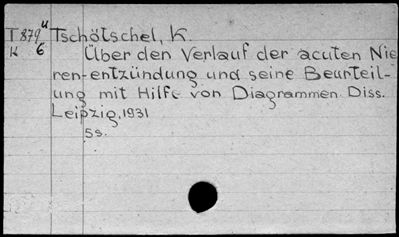 T879u Tschötschel, K.
K 6
Über den Verlauf der acuten Nie
ren-entzündung und seine Beurteil-
ung mit Hilfe von Diagrammen. Diss.
Leipzig, 1931
5s.